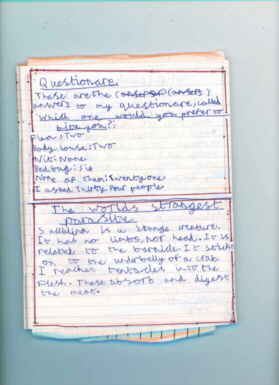 Questionare
These are the (answers)
answers to my questionare, called
"Which one would you prefer to
bite you?":
Flea: Two
Body louse: Two
Nit: None
Bed bug: Six
None of them: Twenty one
I asked Thirty four people
The worlds strangest
parasite
Sacculina is a strange creature.
It has no limbs, nor head. It is
related to the barnicle. It sticks
on to the underbelly of a crab
I reaches tentacles into the
flesh. These absorb and digest
the meat.